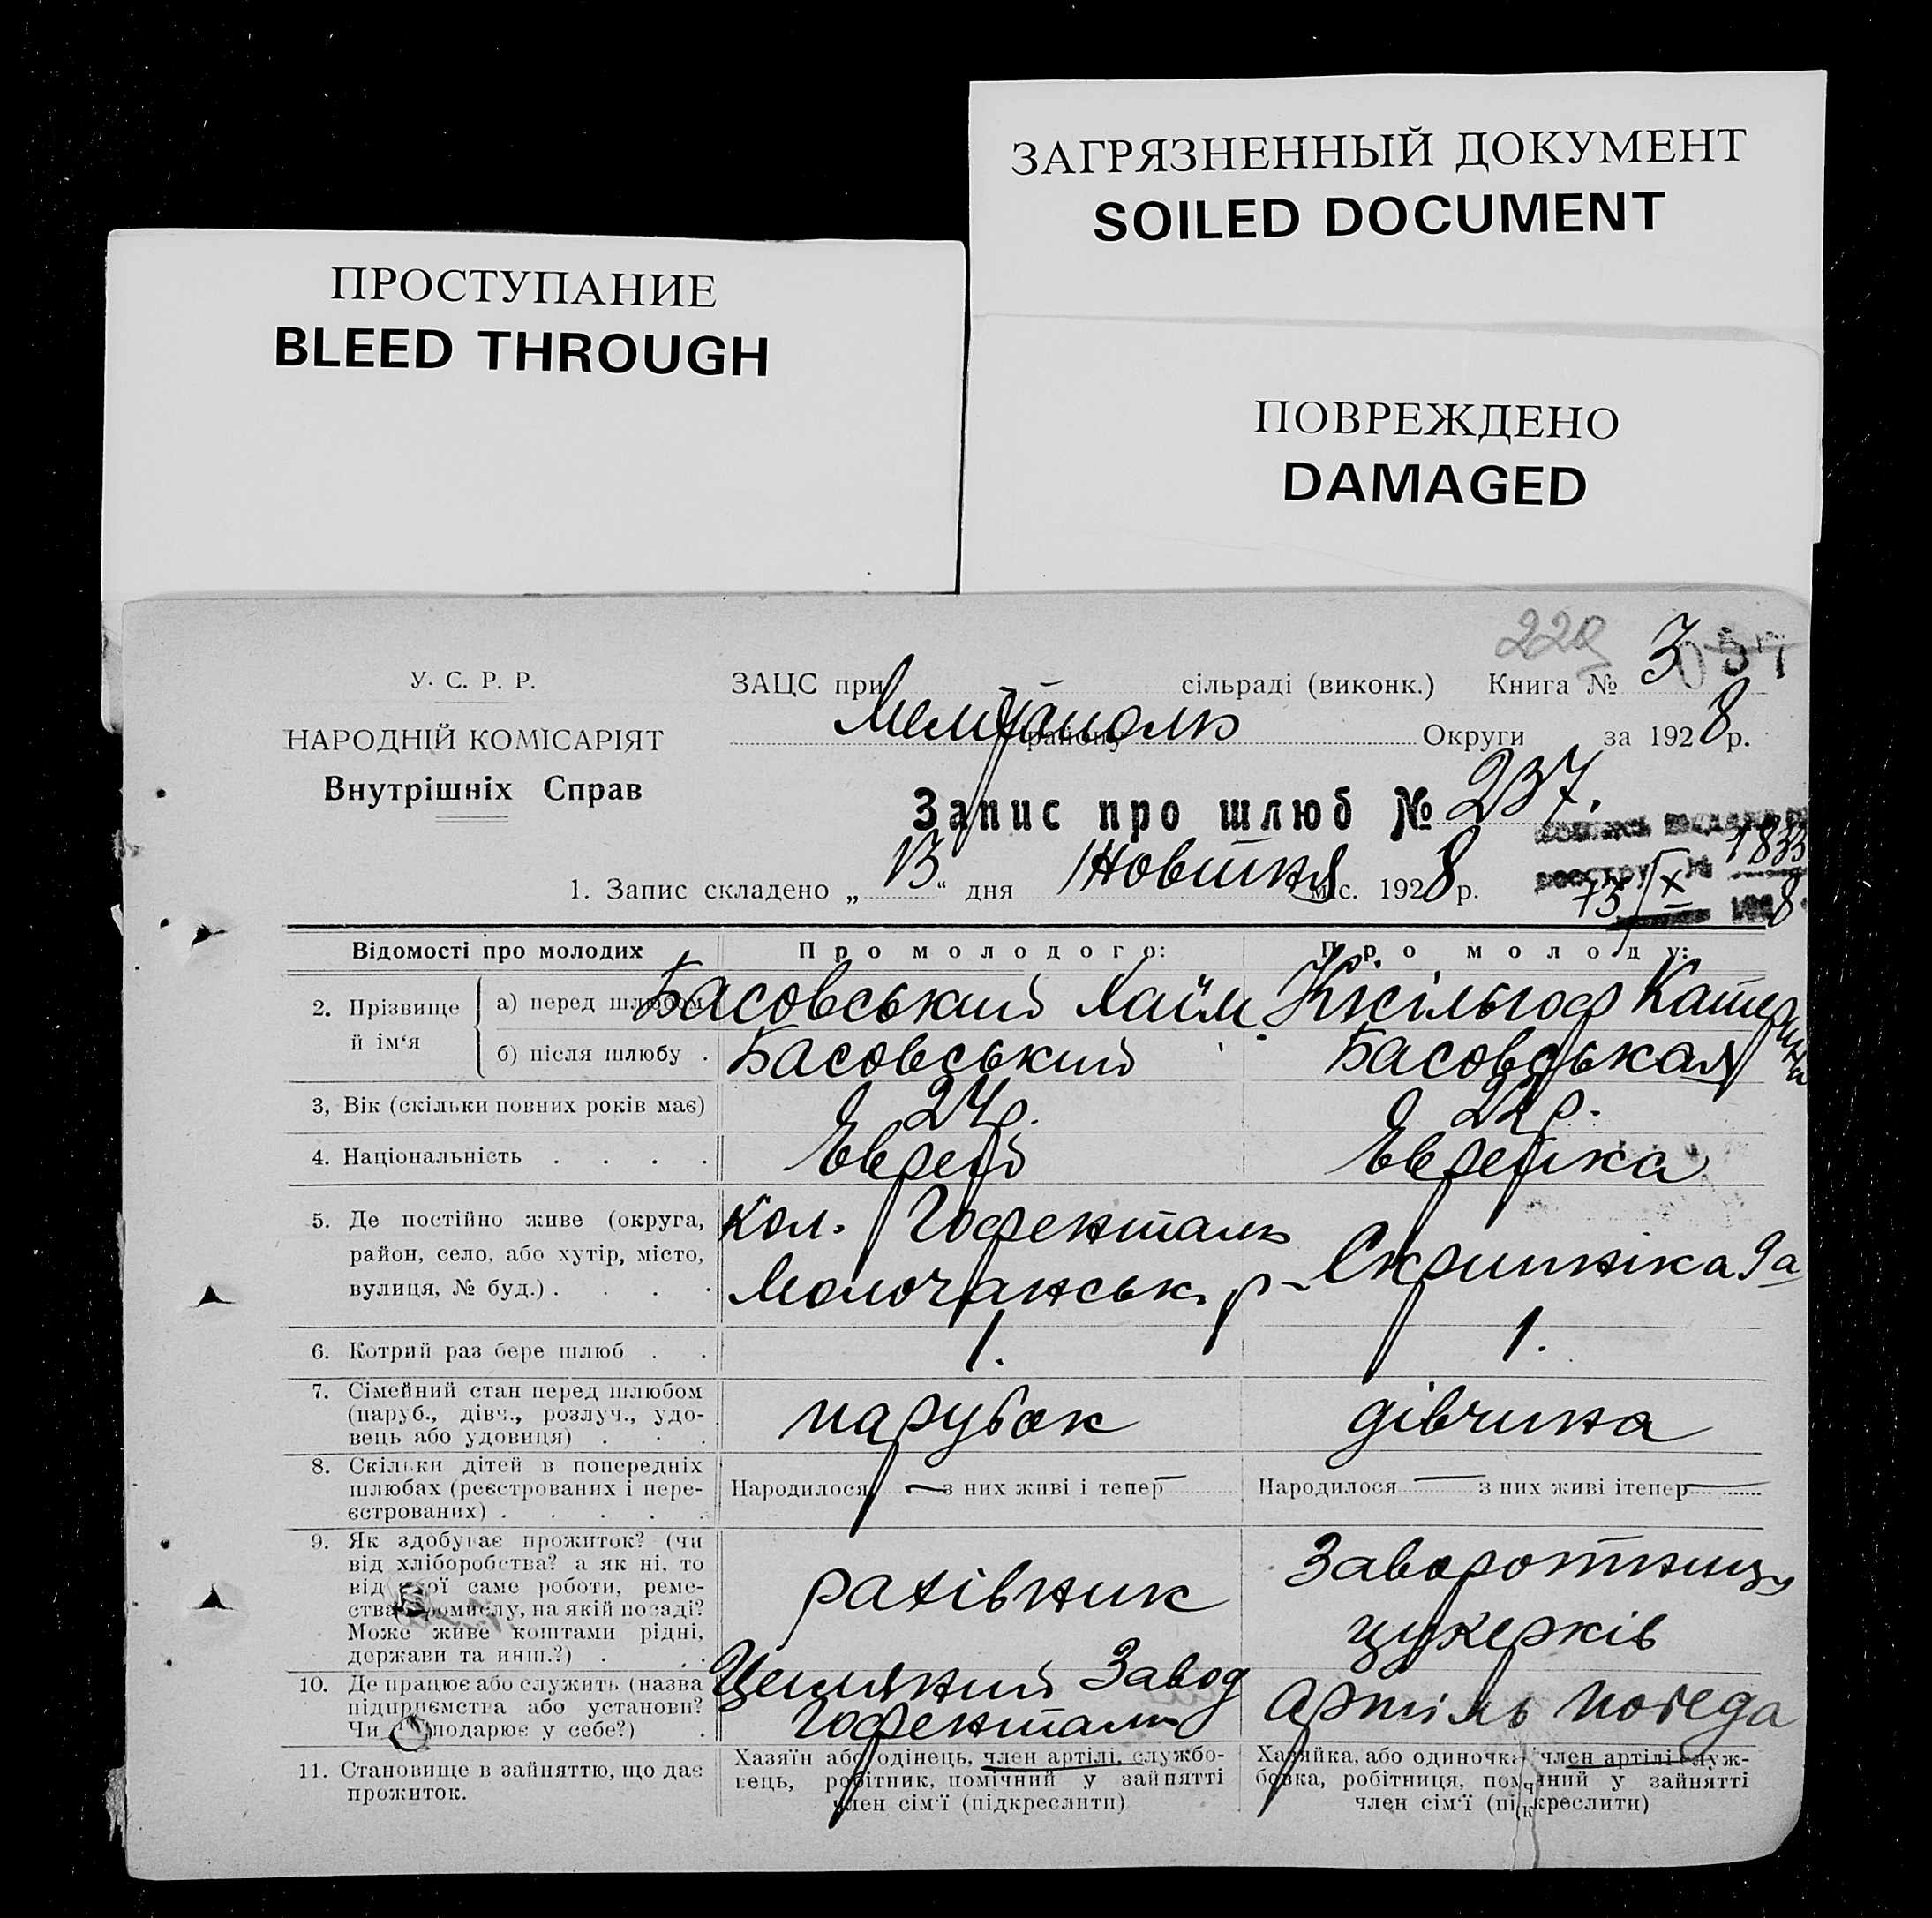 ЗАГРЯЗНЕННЫЙ ДОКУМЕНТ
SOILED DOCUMENT
ПРОСТУПАНИЕ
BLEED THROUGH
ПОВРЕЖДЕНО
DAMAGED
229 3
У. С. Р. Р.
НАРОДНІЙ КОМІСАРІЯТ
Внутрішніх Справ
ЗАЦС при сільраді (виконк.) Книга №
району Округи за 1928 р.
Запис про шлюб № 237.
1. Запис складено „13“ дня Жовтня міс. 1928 р.
1833
13/X 1928
Відомості про молодих
Про молодого:
Про молоду:
2. Прізвище й ім'я
а) перед шлюбом Басовський Хаїм Катерина
б) після шлюбу . Басовський Басовськая
3, Вік (скільки повних років має) 24 р. 22 р.
4. Національність . . . . Еврей Еврейка
5. Де постійно живе (округа, кол. Гофенталь
район, село, або хутір, місто, Скрипніка 9а
вулиця, № буд.) . . . . Молочанськ. р-
6. Котрий раз бере шлюб . . 1. 1.
7. Сімейний стан перед шлюбом
(паруб., дівч., розлуч., удо- парубок дівчина
вець або удовиця) . . .
8. Скільки дітей в попередніх
шлюбах (реєстрованих і нере- Народилося — з них живі і тепер — Народилося — з них живі ітепер —
єстрованих) . . . . .
9. Як здобуває прожиток? (чи
від хліборобства? а як ні, то
від якої саме роботи, реме-
ства, промислу, на якій посаді?
Може живе коштами рідні,
держави та инш.?) . . .
рахівник
Заворотниця
цукерків
10. Де працює або служить (назва
підприємства або установи?
Чи господарює у себе?) .
Завод
Гофенталь
Артіль Победа
11. Становище в зайняттю, що дає
прожиток.
Хазяїн або одінець, член артілі, службо-
вець, робітник, помічний у зайнятті
член сім'ї (підкреслити)
Хазяйка, або одиночка, член артілі служ-
бовка, робітниця, помічний у зайнятті
член сім'ї (підкреслити)